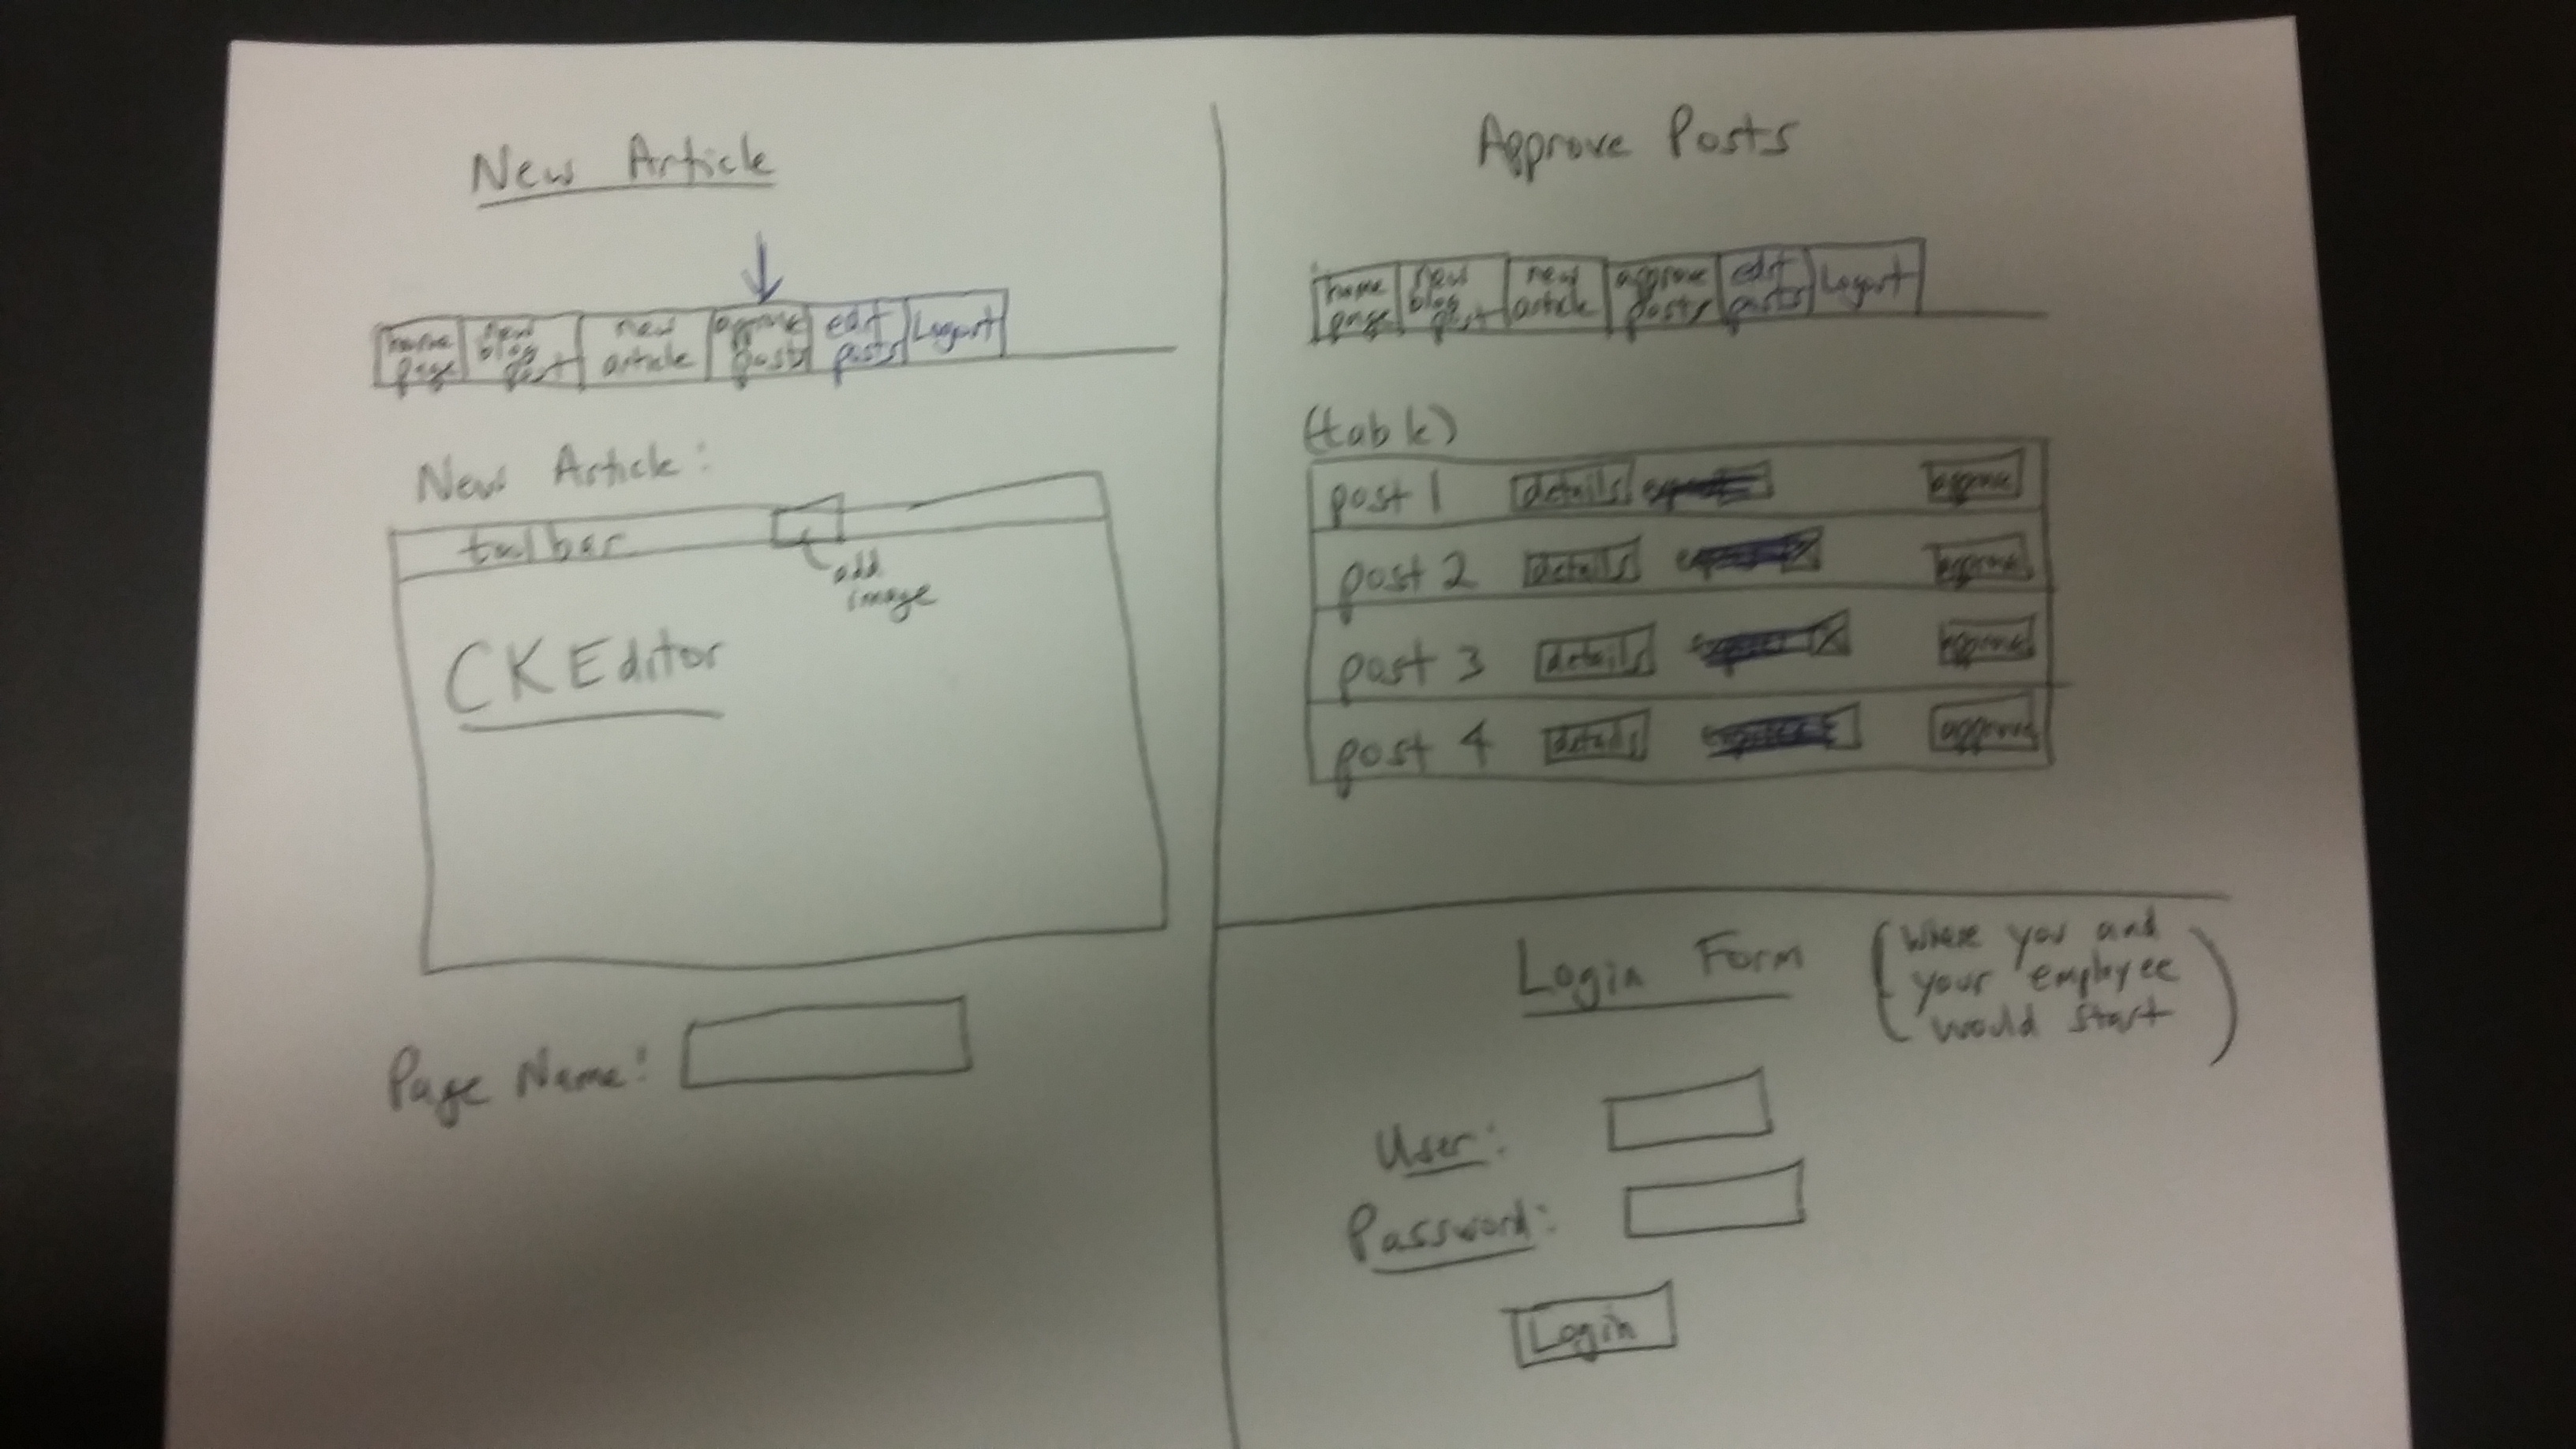 New Article
home
page
new
blog
post
new
article
approve
posts
edit
posts
Logout
New Article:
toolbar
add
image
CKEditor
Page Name:
Approve Posts
home
page
new
blog
post
new
article
approve
posts
edit
posts
Logout
(table)
post 1 details approve
post 2 details approve
post 3 details approve
post 4 details approve
Login Form
(Where you and
your employee
would start)
User:
Password:
Login